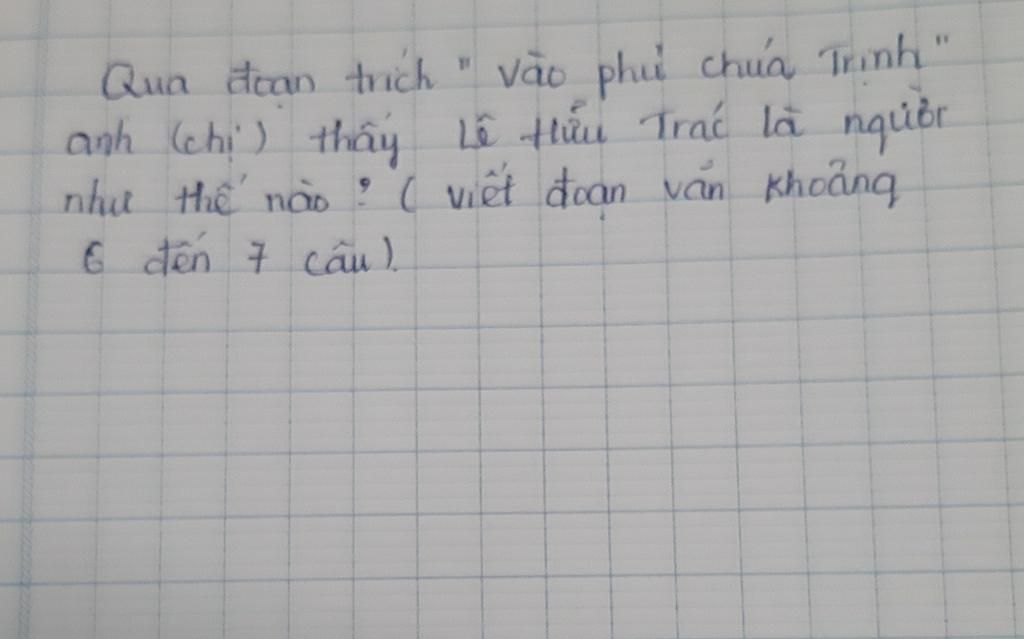 Qua đoạn trích " vào phủ chúa Trịnh"
anh (chị) thấy Lê Hữu Trác là người
như thế nào? ( viết đoạn văn khoảng
6 đến 7 câu).